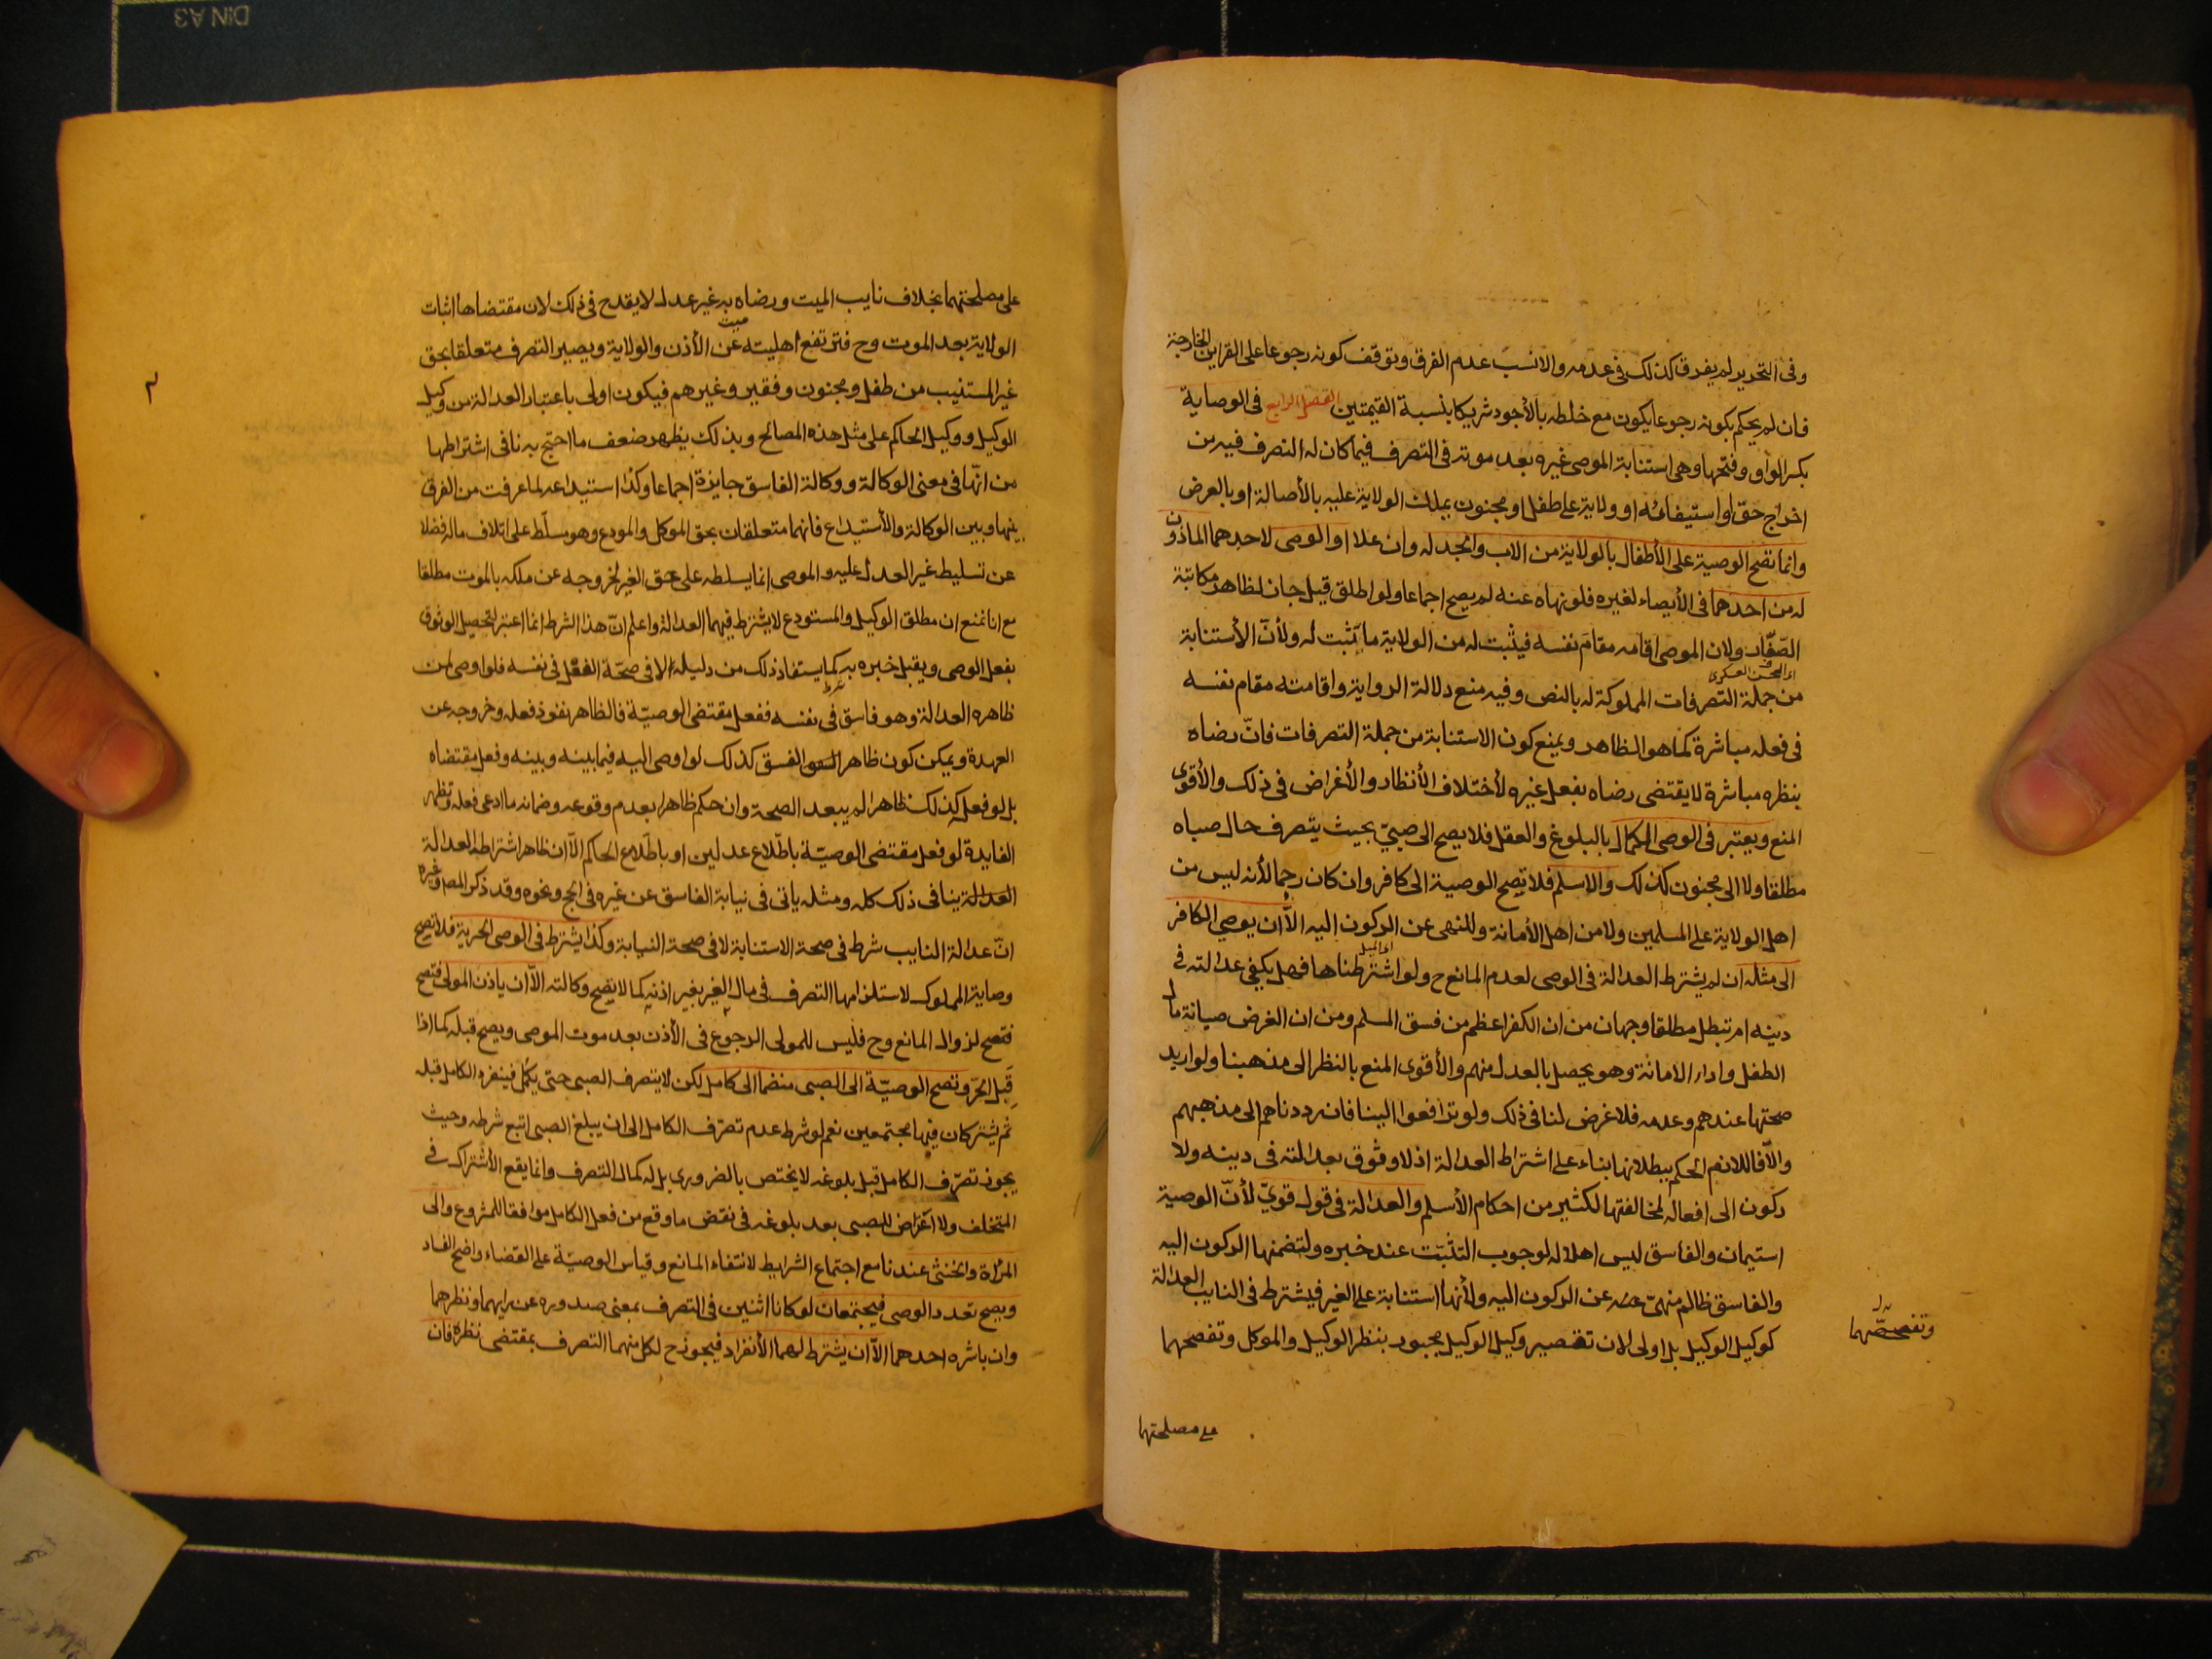 وفى التحرير لم يفرق كذلك فى عدمه والانسب عدم الفرق وتوقف كونه رجوعا على القراين الخارجة
فان لم يحكم بكونه رجوعا يكون مع خلطه بالأجود شريكا بنسبة القيمتين الفصل الرابع فى الوصاية
بكسر الواو وفتحها وهى استنابة الموصى غيره بعد موته فى التصرف فيما كان له التصرف فيه من
اخراج حق او استيفائه او ولاية على طفل او مجنون يملك الولاية عليه بالأصالة او بالعرض
وانما تصح الوصية على الأطفال بالولاية من الاب والجد له وان علا او الوصى لاحدهما الماذون
له من احدهما فى الأيصاء لغيره فلو نهاه عنه لم يصح اجماعا ولو اطلق قيل جاز لظاهر مكاتبة
الصفّار ولان الموصى اقامه مقام نفسه فيثبت له من الولاية ما يثبت له ولأنّ الأستنابة
العسكرى
من جملة التصرفات المملوكة له بالنص وفيه منع دلالة الرواية واقامته مقام نفسه
فى فعله مباشرة كما هو الظاهر ويمنع كون الاستنابة من جملة التصرفات فانّ رضاه
بنظره مباشرة لا يقتضى رضاه بفعل غيره لأختلاف الأنظار والأغراض فى ذلك والأقوى
المنع ويعتبر فى الوصى الكمال بالبلوغ والعقل فلا يصح الى صبيّ بحيث يتصرف حال صباه
مطلقا ولا الى مجنون كذلك والاسلم فلا تصح الوصية الى كافر وان كان رحما لأنه ليس من
اهل الولاية على المسلمين ولا من اهل الأمانة وللنهى عن الركون اليه الّا ان يوصى الكافر
اى الميل
الى مثله ان لم يشترط العدالة فى الوصى لعدم المانع ح ولو اشترطناها فهل يكفى عدالته فى
دينه ام تبطل مطلقا وجهان من ان الكفر اعظم من فسق المسلم ومن ان الغرض صيانة مال
الطفل واداء الامانة وهو يحصل بالعدل منهم والأقوى المنع بالنظر الى مذهبنا ولو اريد
صحتها عندهم وعدمه فلا غرض لنا فى ذلك ولو ترافعوا الينا فان رددناهم الى مذهبهم
والّا فاللازم الحكم ببطلانها بناء على اشتراط العدالة اذ لا وثوق بعدالته فى دينه ولا
ركون الى افعاله لمخالفتها لكثير من احكام الأسلم والعدالة فى قول قويّ لأنّ الوصية
استيمان والفاسق ليس اهلا له لوجوب التثبّت عند خبره ولتضمنها الركون اليه
والفاسق ظالم منهيّ عن الركون اليه ولأنها استنابة على الغير فيشترط فى النايب العدالة
كوكيل الوكيل بل اولى لان تقصير وكيل الوكيل مجبور بنظر الوكيل والموكل وتفحصهما
وتفحصهما
على مصلحتهما
على مصلحتهما بخلاف نايب الميت ورضاه به غير عدل لا يقدح فى ذلك لان مقتضاها اثبات
الولاية بعد الموت وح فترتفع اهليته عن الأذن والولاية ويصير التصرف متعلقا بحق
غير المستنيب من طفل ومجنون وفقير وغيرهم فيكون اولى باعتبار العدالة من وكيل
الوكيل ووكيل الحاكم على مثل هذه المصالح وبذلك يظهر ضعف ما احتج به نافى اشتراطها
من انّها فى معنى الوكالة ووكالة الفاسق جايزة اجماعا وكذا استيداعه لما عرفت من الفرق
بينها وبين الوكالة والأستيداع فانهما متعلقان بحق الموكل والمودع وهو مسلّط على اتلاف ماله فضلا
عن تسليط غير العدل عليه والموصى انما يسلطه على حق الغير لخروجه عن ملكه بالموت مطلقا
مع انا نمنع ان مطلق الوكيل والمستودع لا يشترط فيهما العدالة واعلم انّ هذا الشرط انما اعتبر لتحصيل الوثوق
بفعل الوصى ويقبل خبره به كما يستفاد ذلك من دليله لا فى صحّة الفعل فى نفسه فلو اوصى لمن
ظاهره العدالة وهو فاسق فى نفسه ففعل مقتضى الوصيّة فالظاهر نفوذ فعله وخروجه عن
العهدة ويمكن كون ظاهر الفسق كذلك لو اوصى اليه فيما بينه وبينه وفعل مقتضاه
بل لو فعل كذلك ظاهرا لم يبعد الصحة وان حكم ظاهرا بعدم وقوعه وضمانه ما ادعى فعله وتظهر
الفايدة لو فعل مقتضى الوصيّة باطّلاع عدلين او باطّلاع الحاكم الّا ان ظاهر اشتراط العدالة
العدالة ينافى ذلك كله ومثله ياتى فى نيابة الفاسق عن غيره فى الحج ونحوه وقد ذكر المص وغيره
انّ عدالة النايب شرط فى صحة الاستنابة لا فى صحة النيابة وكذا يشترط فى الوصى الحرية فلا تصح
وصاية المملوك لاستلزامها التصرف فى مال الغير بغير اذنه كما لا يصح وكالته الّا ان ياذن المولى فتصح
فتصح لزوال المانع وح فليس للمولى الرجوع فى الأذن بعد موت الموصى ويصح قبله كما اذا
قبل الحرّ وتصح الوصيّة الى الصبى منضما الى كامل لكن لا يتصرف الصبى حتى يكمل فينفرد الكامل قبله
ثم يشتركان فيها مجتمعين نعم لو شرط عدم تصرّف الكامل الى ان يبلغ الصبى اتبع شرطه وحيث
يجوز تصرّف الكامل قبل بلوغه لا يختص بالضرورى بل له كمال التصرف وانما يقع الأشتراك فى
المتخلف ولا اعتراض للصبى بعد بلوغه فى نقض ما وقع من فعل الكامل موافقا للمشروع والى
المرأة والخنثى عندنا مع اجتماع الشرايط لانتفاء المانع وقياس الوصيّة على القضاء واضح الفساد
ويصح تعدد الوصى فيجتمعان لو كانا اثنين فى التصرف بمعنى صدوره عن رايهما ونظرهما
وان باشره احدهما الّا ان يشترط لهما الأنفراد فيجوز ح لكل منهما التصرف بمقتضى نظره فان